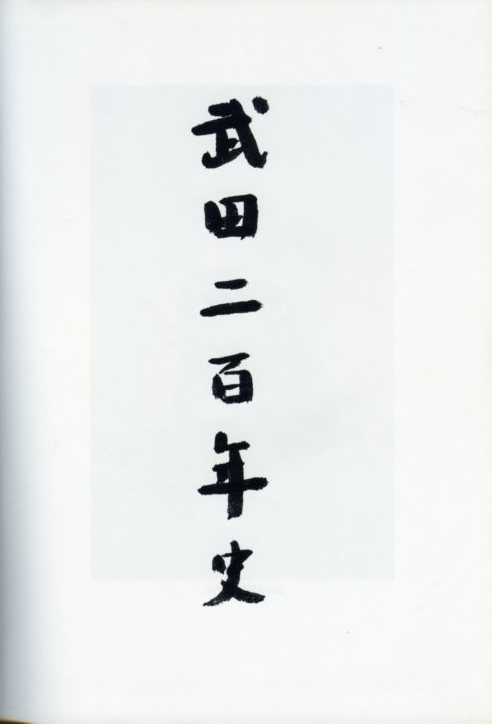 武田二百年史